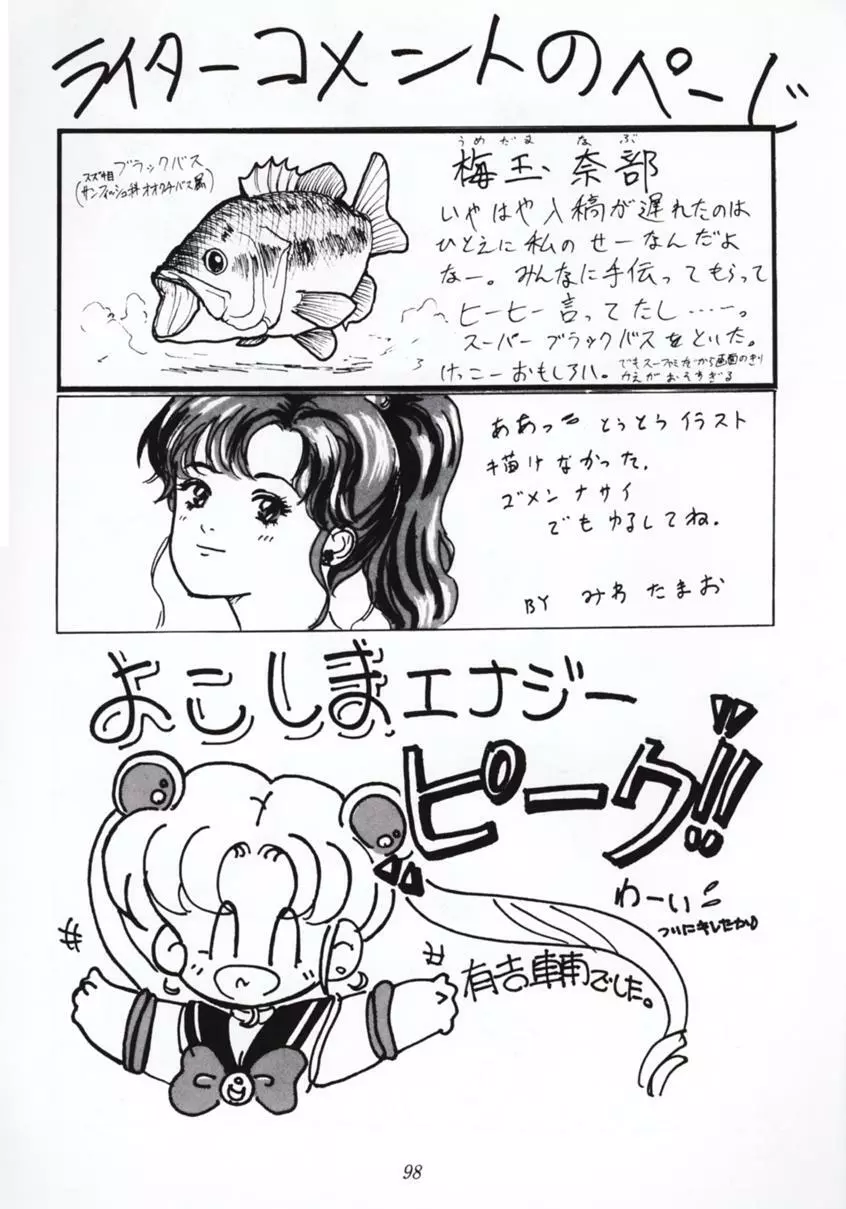 ライターコメントのページ
スズキ目 ブラックバス
(サンフィッシュ科オオクチバス属)
うめだま なぶ
梅玉 奈部
いやはや入稿が遅れたのは
ひとえに私のせーなんだよ
なー。みんなに手伝ってもらって
ヒーヒー言ってたし……。
スーパーブラックバスをといた。
けっこーおもしろい。
でもスーファミだから画面のきり
かえがおそすぎる
ああっ とうとうイラスト
描けなかった。
ゴメンナサイ
でもゆるしてね。
BY みわ たまお
よこしまエナジー
ピーク!!
わーい
ついにキしたか
でした。
98